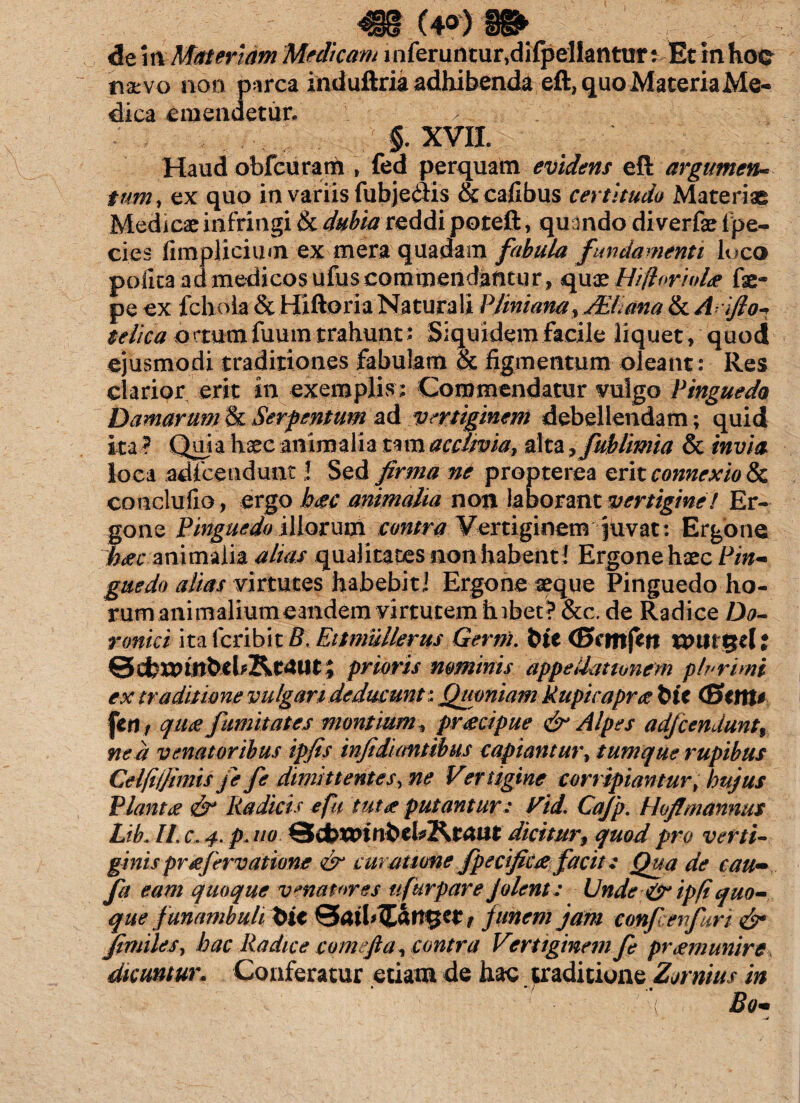 (40)
de in Materiam Medicam inferuntur,difpellantur: Et in hoc
nævo non parca induftria adhibenda eft, quo Materia Me-
dica emendetur.
§. XVII.
Haud obfcuram , fed perquam evidens eft argumen-
tum, ex quo in variis fubjectis & cafibus certitudo Materiæ
Medicæ infringi & dubia reddi poteft, quando diverfæ fpe-
cies fimplicium ex mera quadam fabula fundamenti loco
pofita ad medicos ufus commendantur, quæ Hiftoriolæ fæ-
pe ex fchola & Hiftoria Naturali Pliniana, Æliana & Arifto-
telica ortum fuum trahunt: Siquidem facile liquet, quod
ejusmodi traditiones fabulam & figmentum oleant: Res
clarior erit in exemplis: Commendatur vulgo Pinguedo
Damarum & Serpentum ad vertiginem debellendam; quid
ita? Quia hæc animalia tam acclivia, alta, fublimia & invia
loca adfcendunt! Sed firma ne propterea erit connexio &
conclufio, ergo hæc animalia non laborant vertigine! Er-
gone Pinguedo illorum contra Vertiginem juvat: Ergone
hæc animalia alias qualitates non habent! Ergone hæc Pin-
guedo alias virtutes habebit! Ergone æque Pinguedo ho-
rum animalium eandem virtutem habet? &c. de Radice Do-
ronici ita fcribit B. Ettmüllerus Germ. die Gemſen wurgel:
Schwindel-Kraut; prioris nominis appellationem plurimi
ex traditione vulgari deducunt: Quoniam Rupicapræ die Gem-
ſen, quæ fumitates montium, præcipue & Alpes adfcendunt,
ne à venatoribus ipfis infidiantibus capiantur, tumque rupibus
Celfiffimis fe fe dimittentes, ne Vertigine corripiantur, hujus
Plantæ & Radicis efu tutæ putantur: Vid. Cafp. Hoffmannus
Lib. II. c. 4. p. 110 Schwindel-Kraut dicitur, quod pro verti-
ginis præfervatione & curatione fpecificæ facit: Qua de cau-
fa eam quoque venatores ufurpare folent: Unde & ipfi quo-
que funambuli die Sail-Tänger, funem jam confcenfuri &
fimiles, hac Radice comefta, contra Vertiginem fe præmunire
dicuntur. Conferatur etiam de hac traditione Zornius in
Bo-